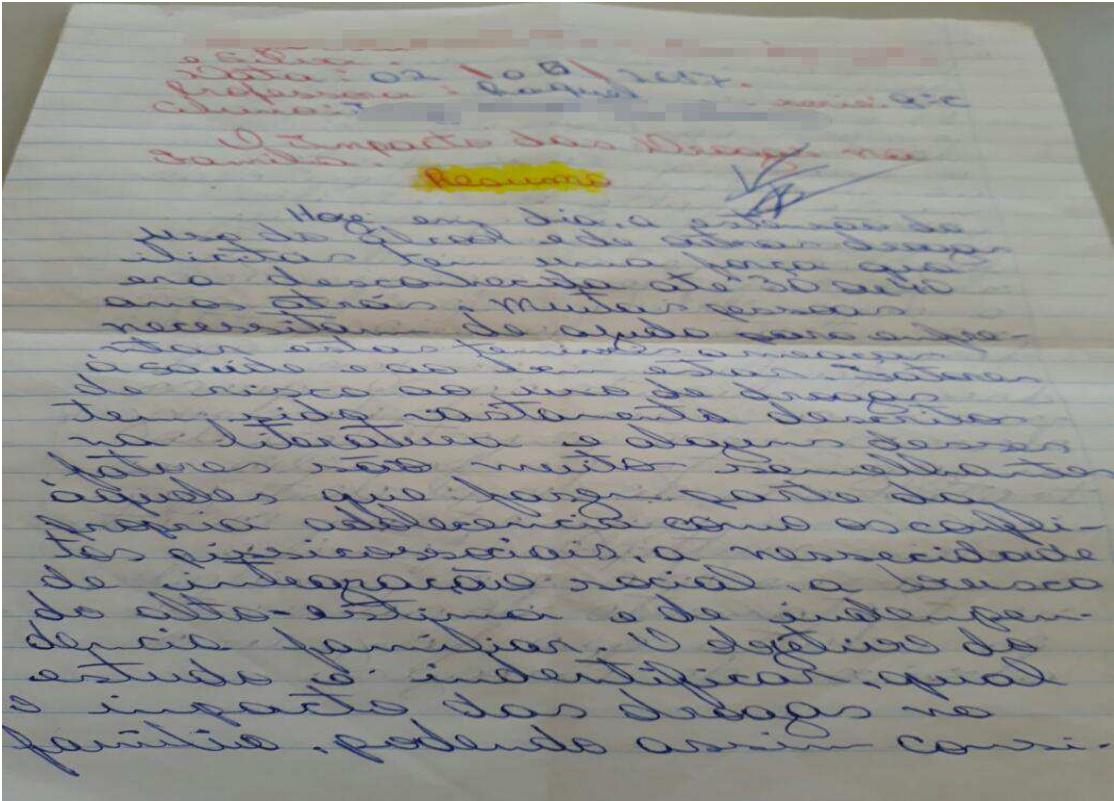 e Silva.
Data: 02 \ 0 8 \ 2017.
Professora: Raquel série: 8º C
Aluno:
O Impacto das Drogas na
Família.
Resumo
Hoge em dia, a extensão do
uso do álcool e de outras drogas
ilícitas tem uma força que
era desconhecida até 30 ou 40
anos atrás, muitas pessoas
necessitam de ajuda para enfre-
ntar estas
à saúde e ao bem estar. Fatores
de risco ao uso de drogas
tem sido vastamente descritos
na literatura e alguns desses
fatores são muito semelhantes
àqueles que fazem parte da
própria adolerencia como os confli-
tos pissicossociais, a nessecidade
de integração social, a busca
do alto-estima e de indenpen-
dencia familiar. O objetivo do
estudo é indentificar, qual
o inpacto das drogas na
família, podendo assim consi-